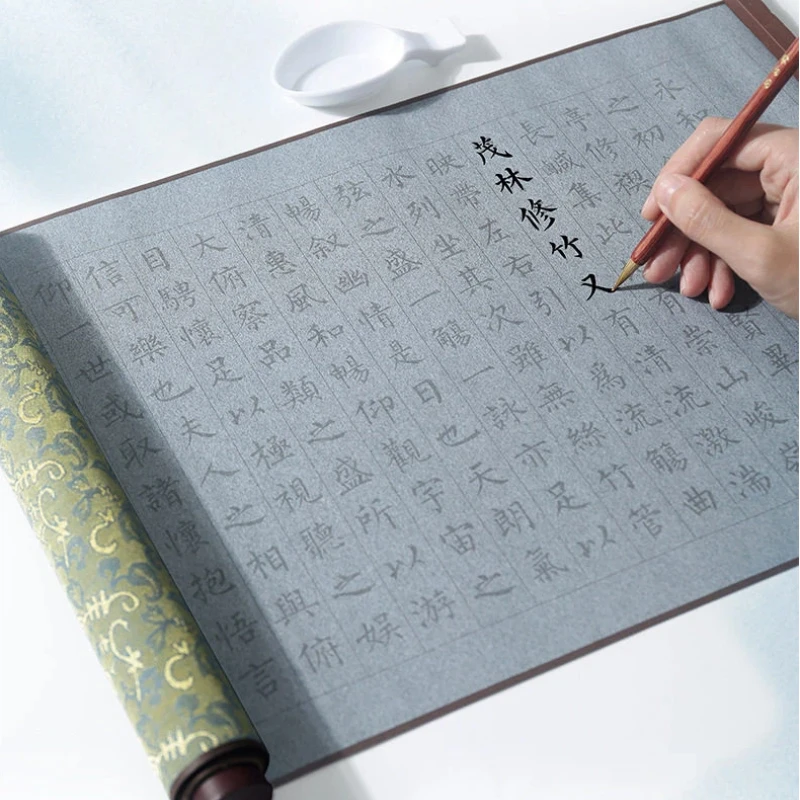 永和
之初
亭修禊賢畢
長鹹集此有崇山峻
茂林修竹又有清流激湍
映帶左右引以爲流觴曲
水列坐其次雖無絲竹管
弦之盛一觴一詠亦足以
暢敘幽情是日也天朗氣
清惠風和暢仰觀宇宙之
大俯察品類之盛所以游
目騁懷足以極視聽之娛
信可樂也夫人之相與俯
仰一世或取諸懷抱悟言